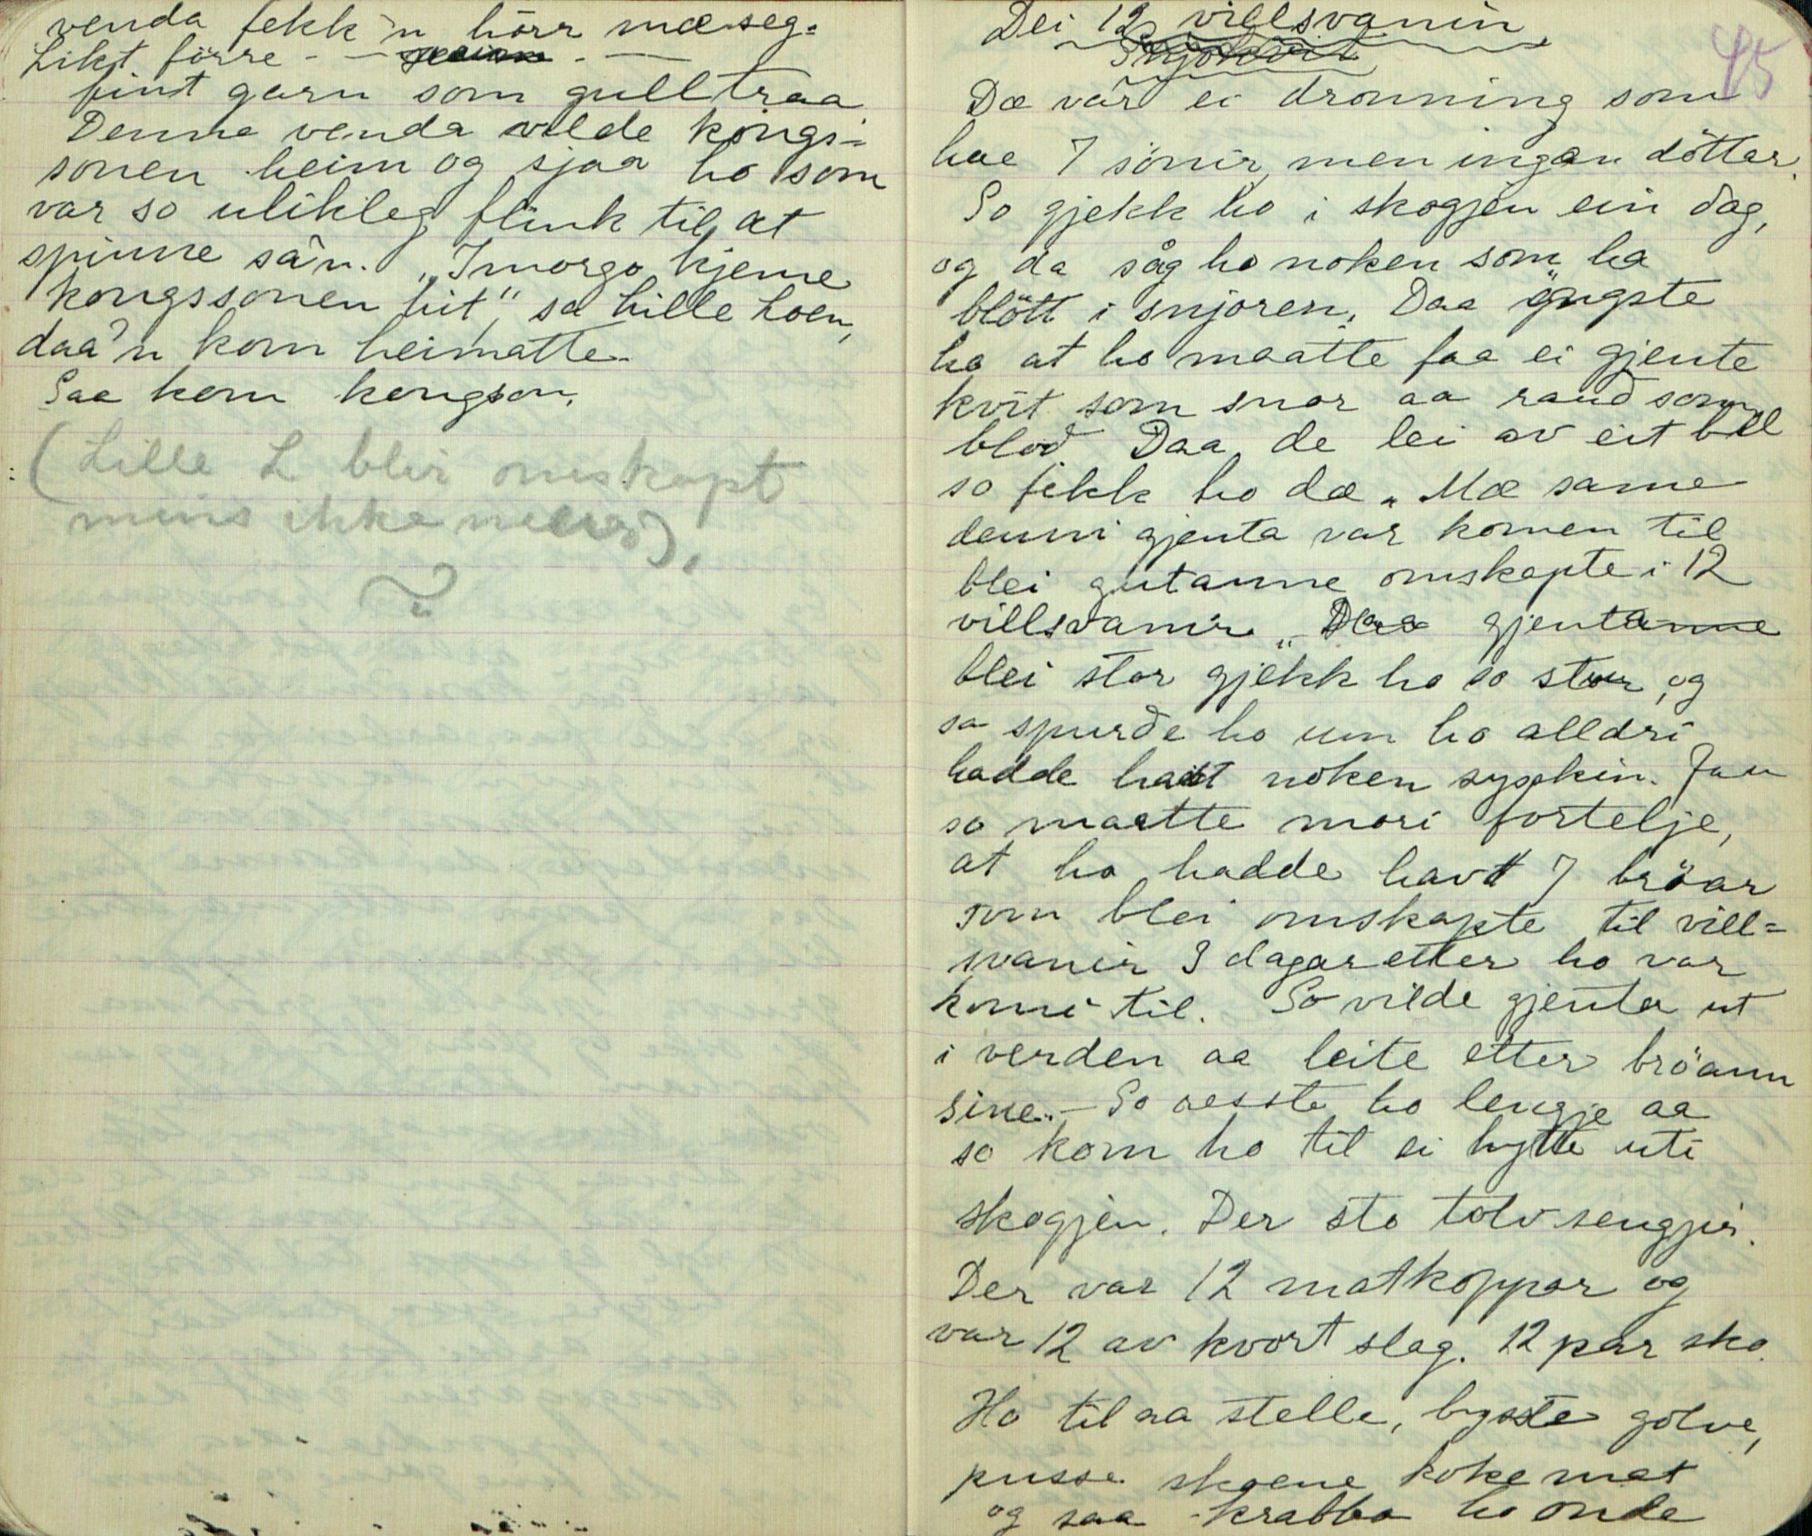 venda fekk'n hörr mæ seg.
Likt förre - -
fint garn som gulltraa
Denne venda vilde kongs-
sonen heim og sjaa ho som
var so ulikleg flink til at
spinne sa'n. „Imorgo kjeme
kongssonen hit" sa hille hoen,
daa'n kom heimatte.
Saa kom kongson.
(Lille L blir omskapt
mins ikke meere).
Dei 12 villsvanin
Snjokvit
45
Dæ var ei dronning som
hae 7 sönir, men ingan döttar.
So gjekk ho i skogjen ein dag,
og da såg ho noken som ha
blött i snjoren. Daa öngste
ho at ho maatte faa ei gjente
kvit som snor aa raud som
blod Daa de lei av eit bel
so fekk ho dæ. Mæ same
denni gjenta var komen til
blei gutanne omskapte i 12
villsvanir. „Daa gjentanne
blei stor gjekk ho so stur, og
sa spurde ho um ho alldri
hadde havt noken syskin. Jau
so maatte mori fortelje,
at ho hadde havt 7 bröar
som blei omskapte til vill-
svanir 3 dagar etter ho var
komi til. So vilde gjenta ut
i verden aa leite etter bröann
sine. - So reiste ho lengje aa
so kom ho til ei hytte uti
skogjen. Der sto tolv sengjir.
Der var 12 matkoppar og
var 12 av kvort slag. 12 par sko.
Ho til aa stelle, byste golve,
pusse skoene koke mat
og saa krabba ho onde